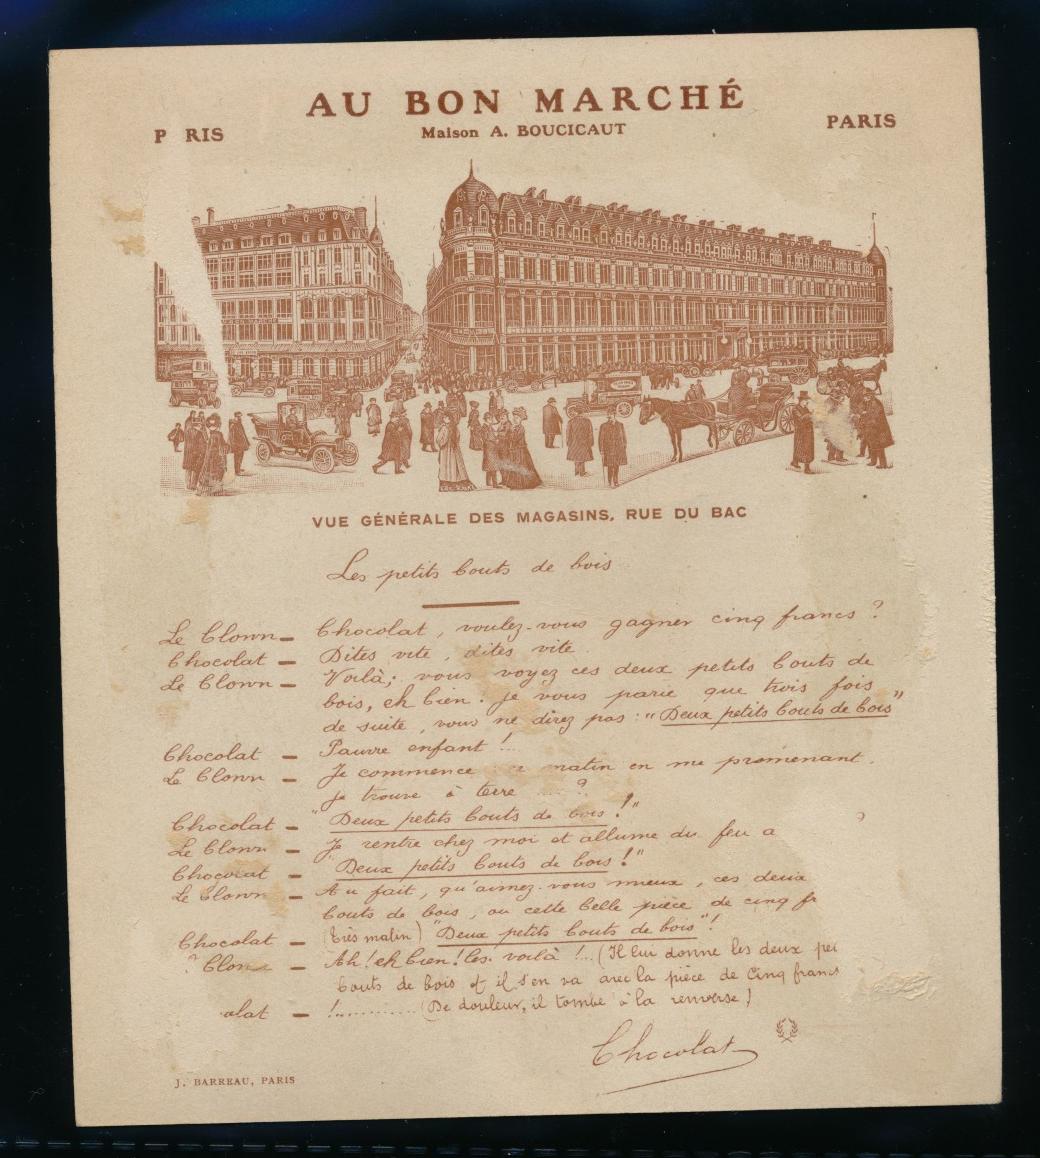 AU BON MARCHÉ
P RIS
Maison A. BOUCICAUT
PARIS
VUE GÉNÉRALE DES MAGASINS, RUE DU BAC
Les petits bouts de bois
Le Clown — Chocolat, voulez-vous gagner cinq francs ?
Chocolat — Dites vite, dites vite.
Le Clown — Voilà; vous voyez ces deux petits bouts de
bois, eh bien. je vous parie que trois fois
de suite, vous ne direz pas : "Deux petits bouts de bois"
Chocolat — Pauvre enfant !...
Le Clown — Je commence matin en me promenant.
je trouve à terre ... ?
Chocolat — "Deux petits bouts de bois !"
Le Clown — Je rentre chez moi et allume du feu a ?
Chocolat — "Deux petits bouts de bois !"
Le Clown — Au fait, qu'aimez-vous mieux, ces deux
bouts de bois, ou cette belle pièce de cinq fr
Chocolat — (très malin) "Deux petits bouts de bois"!
Clow — Ah! eh bien! les voilà !... (Il lui donne les deux pe
bouts de bois et il s'en va avec la pièce de cinq francs
olat — !............ (De douleur, il tombe à la renverse)
Chocolat
J. BARREAU, PARIS